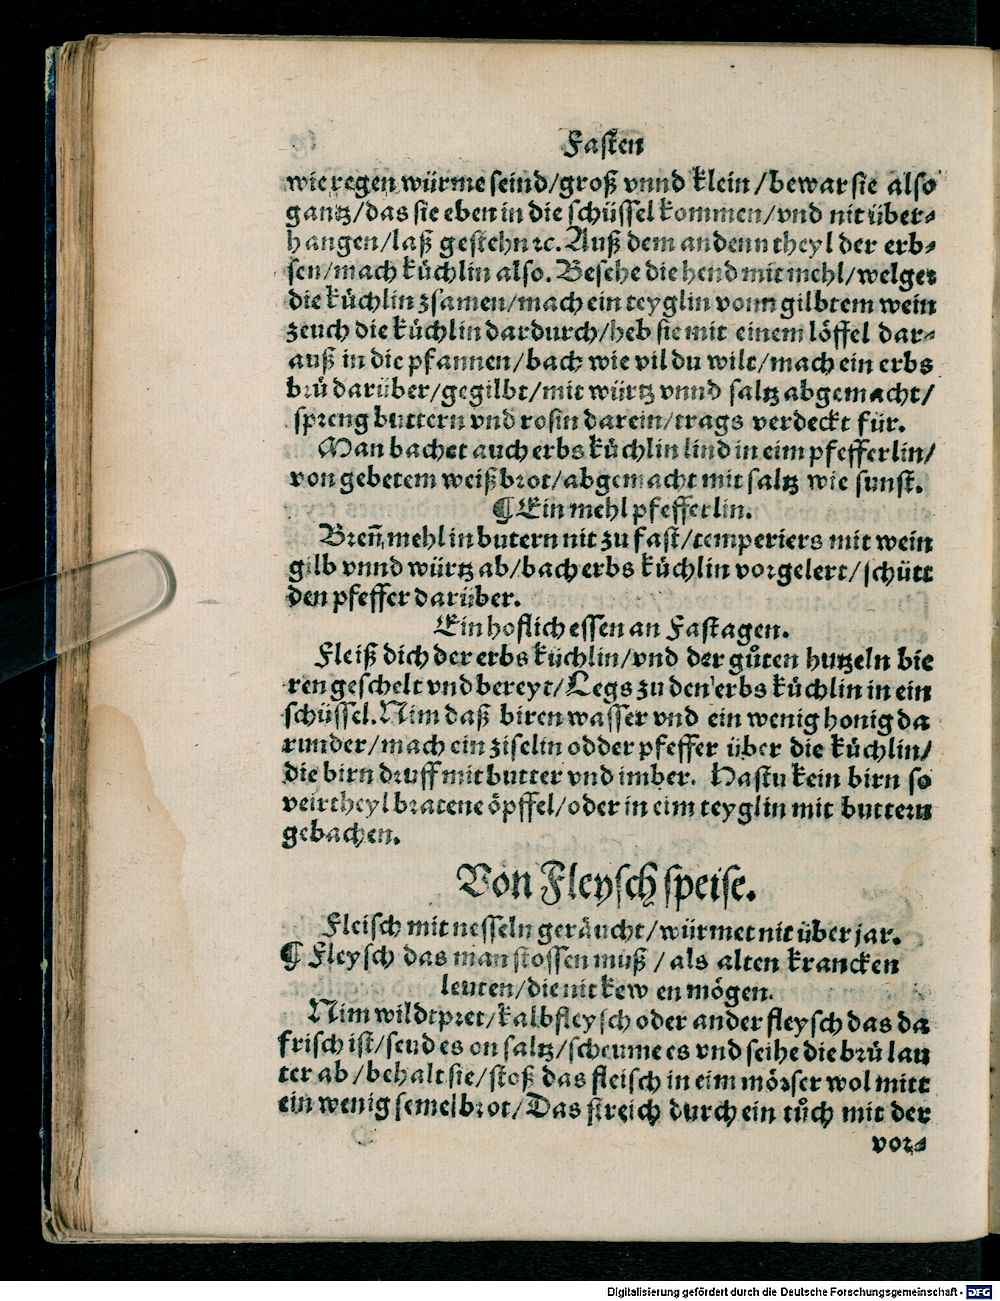 Fasten
wie regen würme seind/groß vnnd klein/bewar sie also
gantz/das sie eben in die schüssel kommen/vnd nit über-
hangen/laß gestehn ꝛc. Auß dem andenn theyl der erb-
sen/mach kůchlin also. Besehe die hend mit mehl/welget
die kůchlin zsamen/mach ein teyglin vonn gilbtem wein
zeuch die kůchlin dardurch/heb sie mit einem löffel dar-
auß in die pfannen/bach wie vil du wilt/mach ein erbs
brů darüber/gegilbt/mit würtz vnnd saltz abgemacht/
spreng buttern vnd rosin darein/trags verdeckt für.
Man bachet auch erbs kůchlin lind in eim pfefferlin/
von gebetem weißbrot/abgemacht mit saltz wie sunst.
¶ Ein mehl pfefferlin.
Breñ mehl in butern nit zu fast/temperiers mit wein
gilb vnnd würtz ab/bach erbs kůchlin vorgelert/schütt
den pfeffer darüber.
Ein hoflich essen an Fastagen.
Fleiß dich der erbs kůchlin/vnd der gůten hutzeln bie
ren geschelt vnd bereyt/Legs zu den erbs kůchlin in ein
schüssel. Nim daß biren wasser vnd ein wenig honig da
runder/mach ein ziselin odder pfeffer über die kůchlin/
die birn druff mit butter vnd imber. Hastu kein birn so
veirtheyl bratene öpffel/oder in eim teyglin mit buttern
gebachen.
Von Fleysch speise.
Fleisch mit nesseln geräucht/würmet nit über jar.
¶ Fleysch das man stossen muß/als alten krancken
leuten/die nit kewen mögen.
Nim wildtpret/kalbfleysch oder ander fleysch das da
frisch ist/seud es on saltz/scheume es vnd seihe die brů lau
ter ab/behalt sie/stoß das fleisch in eim mörser wol mitt
ein wenig semelbrot/Das streich durch ein tůch mit der
vor-
Digitalisierung gefördert durch die Deutsche Forschungsgemeinschaft - DFG